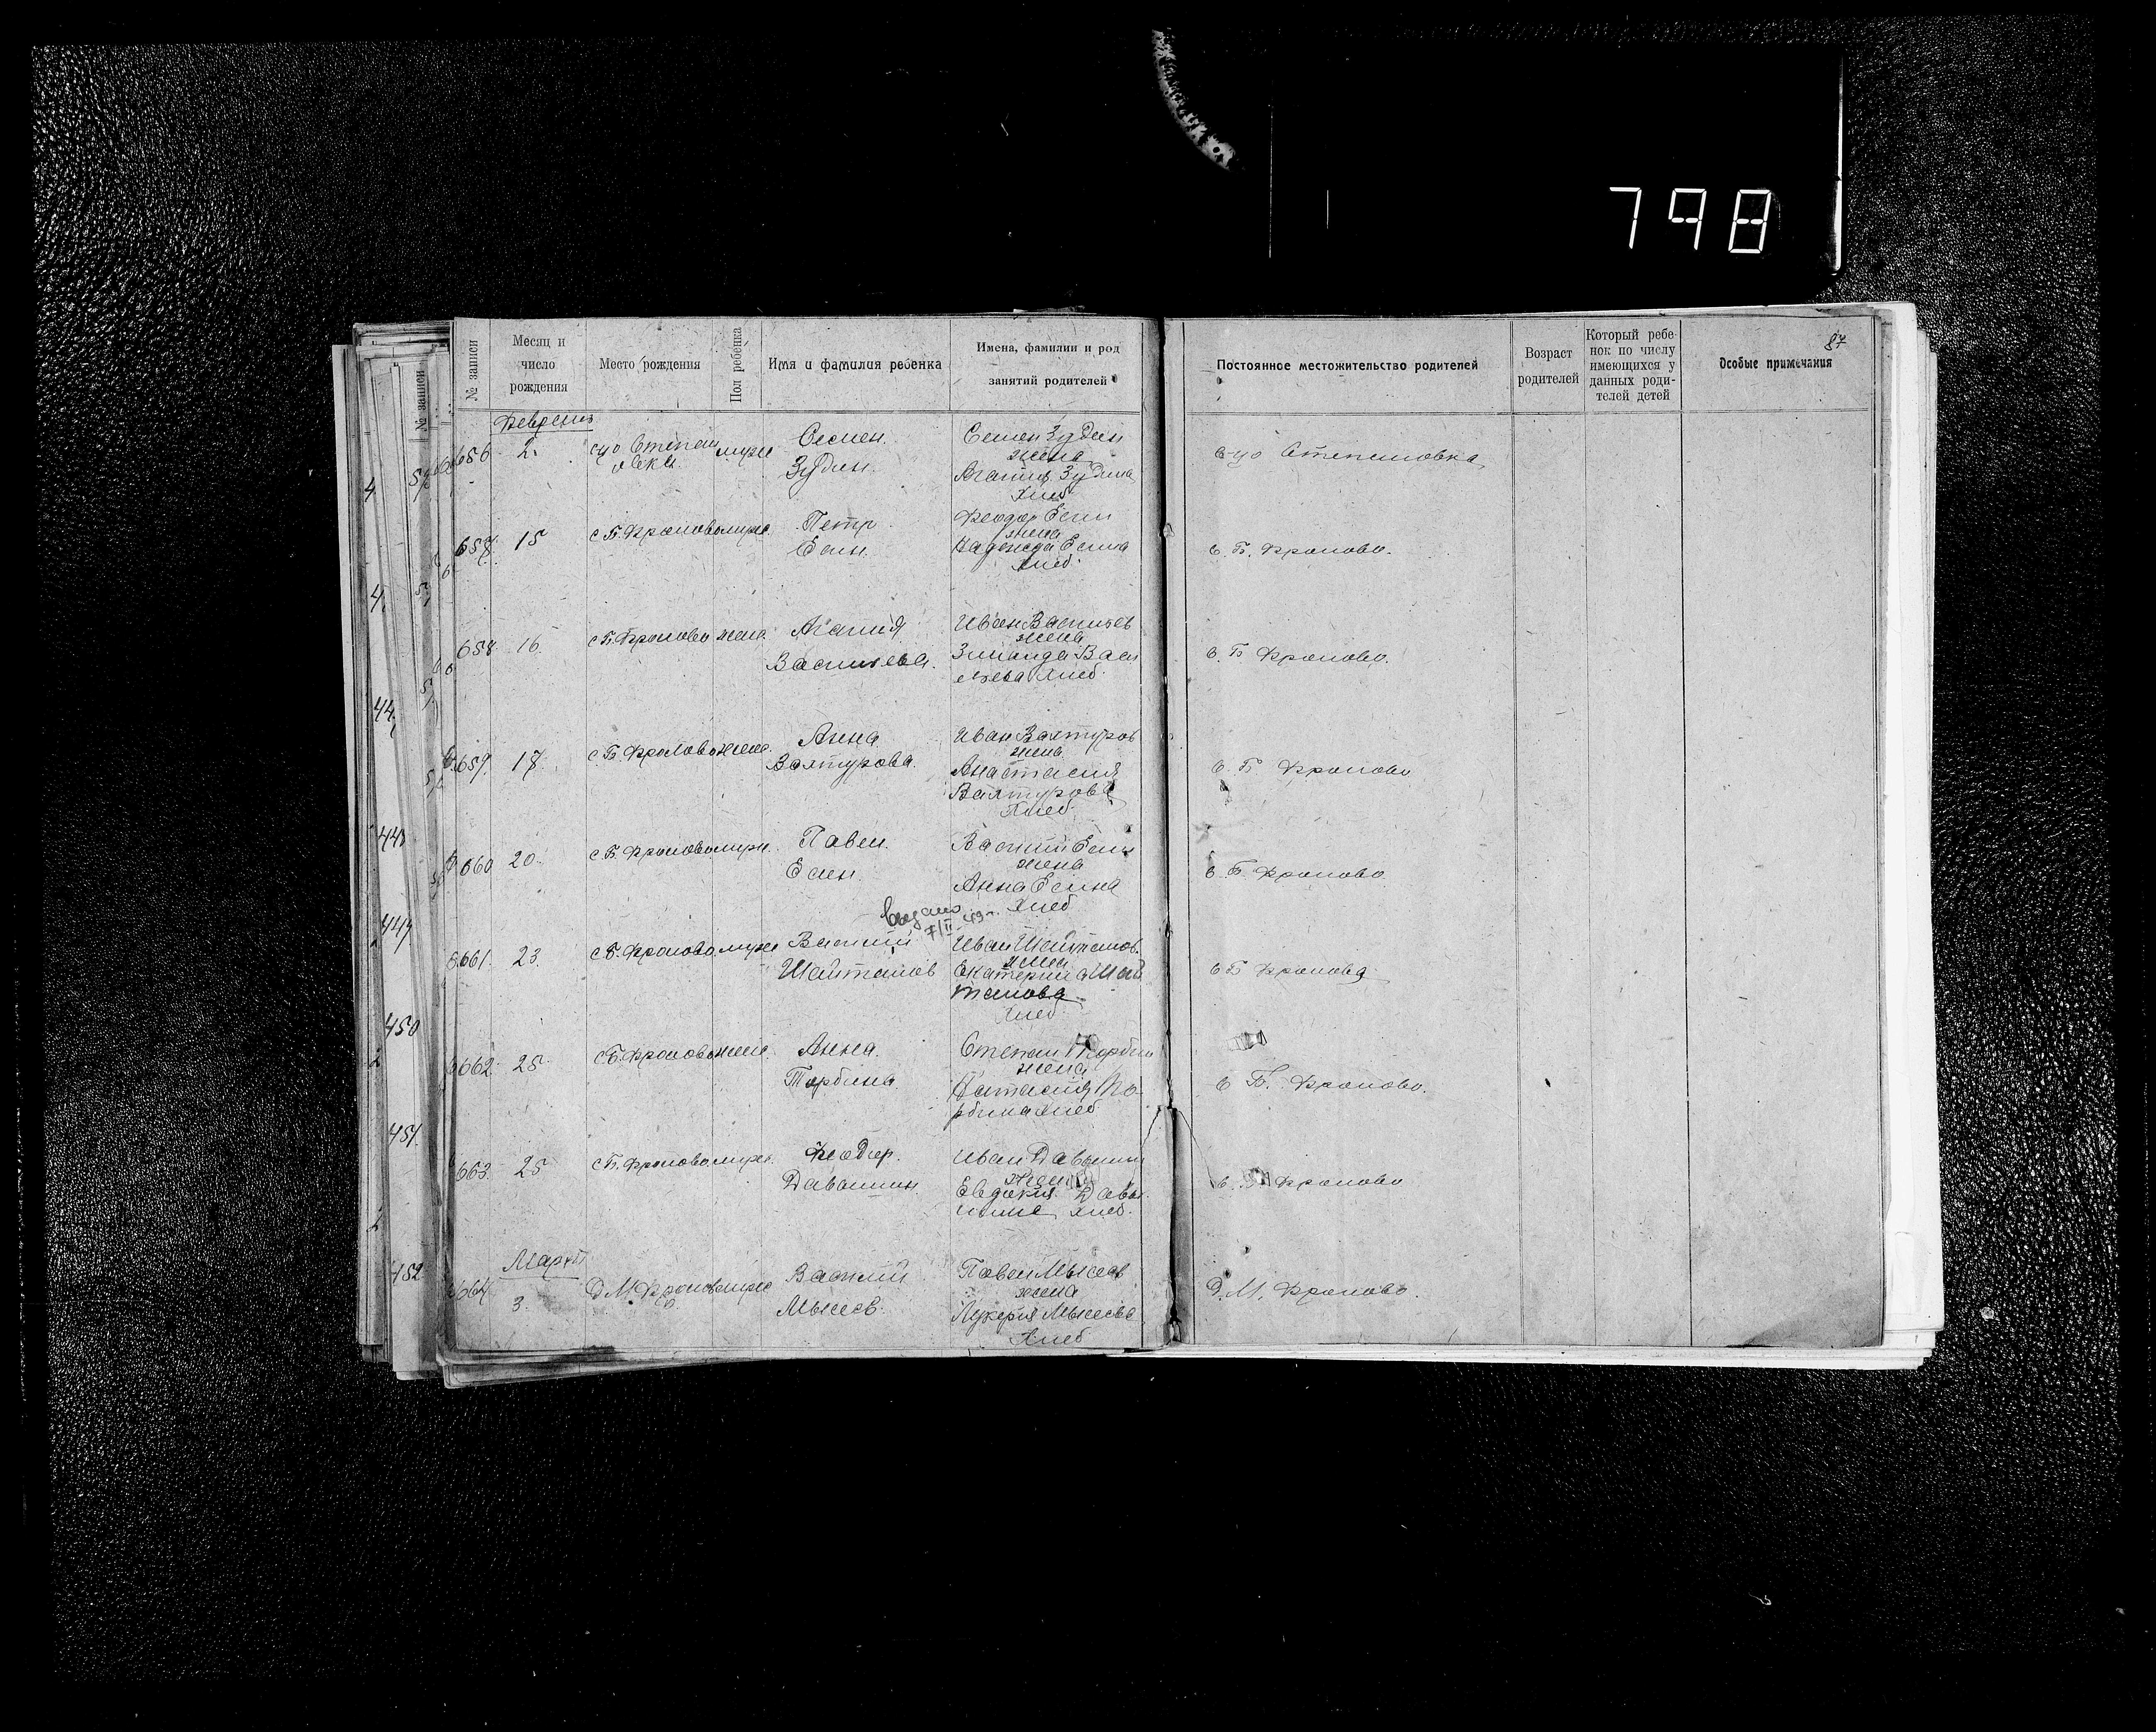 798
87
№ записи
Месяц и число рождения
Место рождения
Пол ребенка
Имя и фамилия ребенка
Имена, фамилии и род занятий родителей
Постоянное местожительство родителей
Возраст родителей
Который ребенок по числу имеющихся у данных родителей детей
Особые примечания
№ записи
Февраль
656 2. муж
Семен.
Зудин.
Семен Зудин
жена
Агапия Зудина
Хлеб.
Степановка
657. 15 с Б. Фролово муж.
Петр
Есин.
Феодор Есин
жена
Надежда Есина
Хлеб.
с. Б. Фролово.
658 16. с Б. Фролово жен.
Агапия
Васильева.
Иван Васильев
жена
Зинаида Васи
льева Хлеб.
с. Б Фролово.
659. 17. с Б. Фролово жен.
Анна
Вахтурова.
Иван Вахтуров
жена
Анастасия
Вахтурова
Хлеб.
с. Б Фролово
660 20. с Б. Фролово муж.
Павел.
Есин.
Василий Есин
жена
Анна Есина
Хлеб
с Б. Фролово.
выдано
7/II 49 г.
661. 23. с Б. Фролово муж
Василий
Шайтанов
Иван Шайтанов.
жена
Екатерина Шай
танова
Хлеб
с Б Фролово
662. 25 с Б. Фролово жен.
Анна.
Торбина.
Степан Торбин
жена
То
рбина хлеб
с Б. Фролово.
663. 25 с Б. Фролово муж.
Феодор.
Иван
жена
Евдокия
Хлеб.
с. Фролово
Март
664 3. Д М Фролово муж
Василий
Мысеев.
Павел Мысеев
жена
Лукерия Мысеева
Хлеб
Д. М. Фролово.
44
448
449
450
451.
452